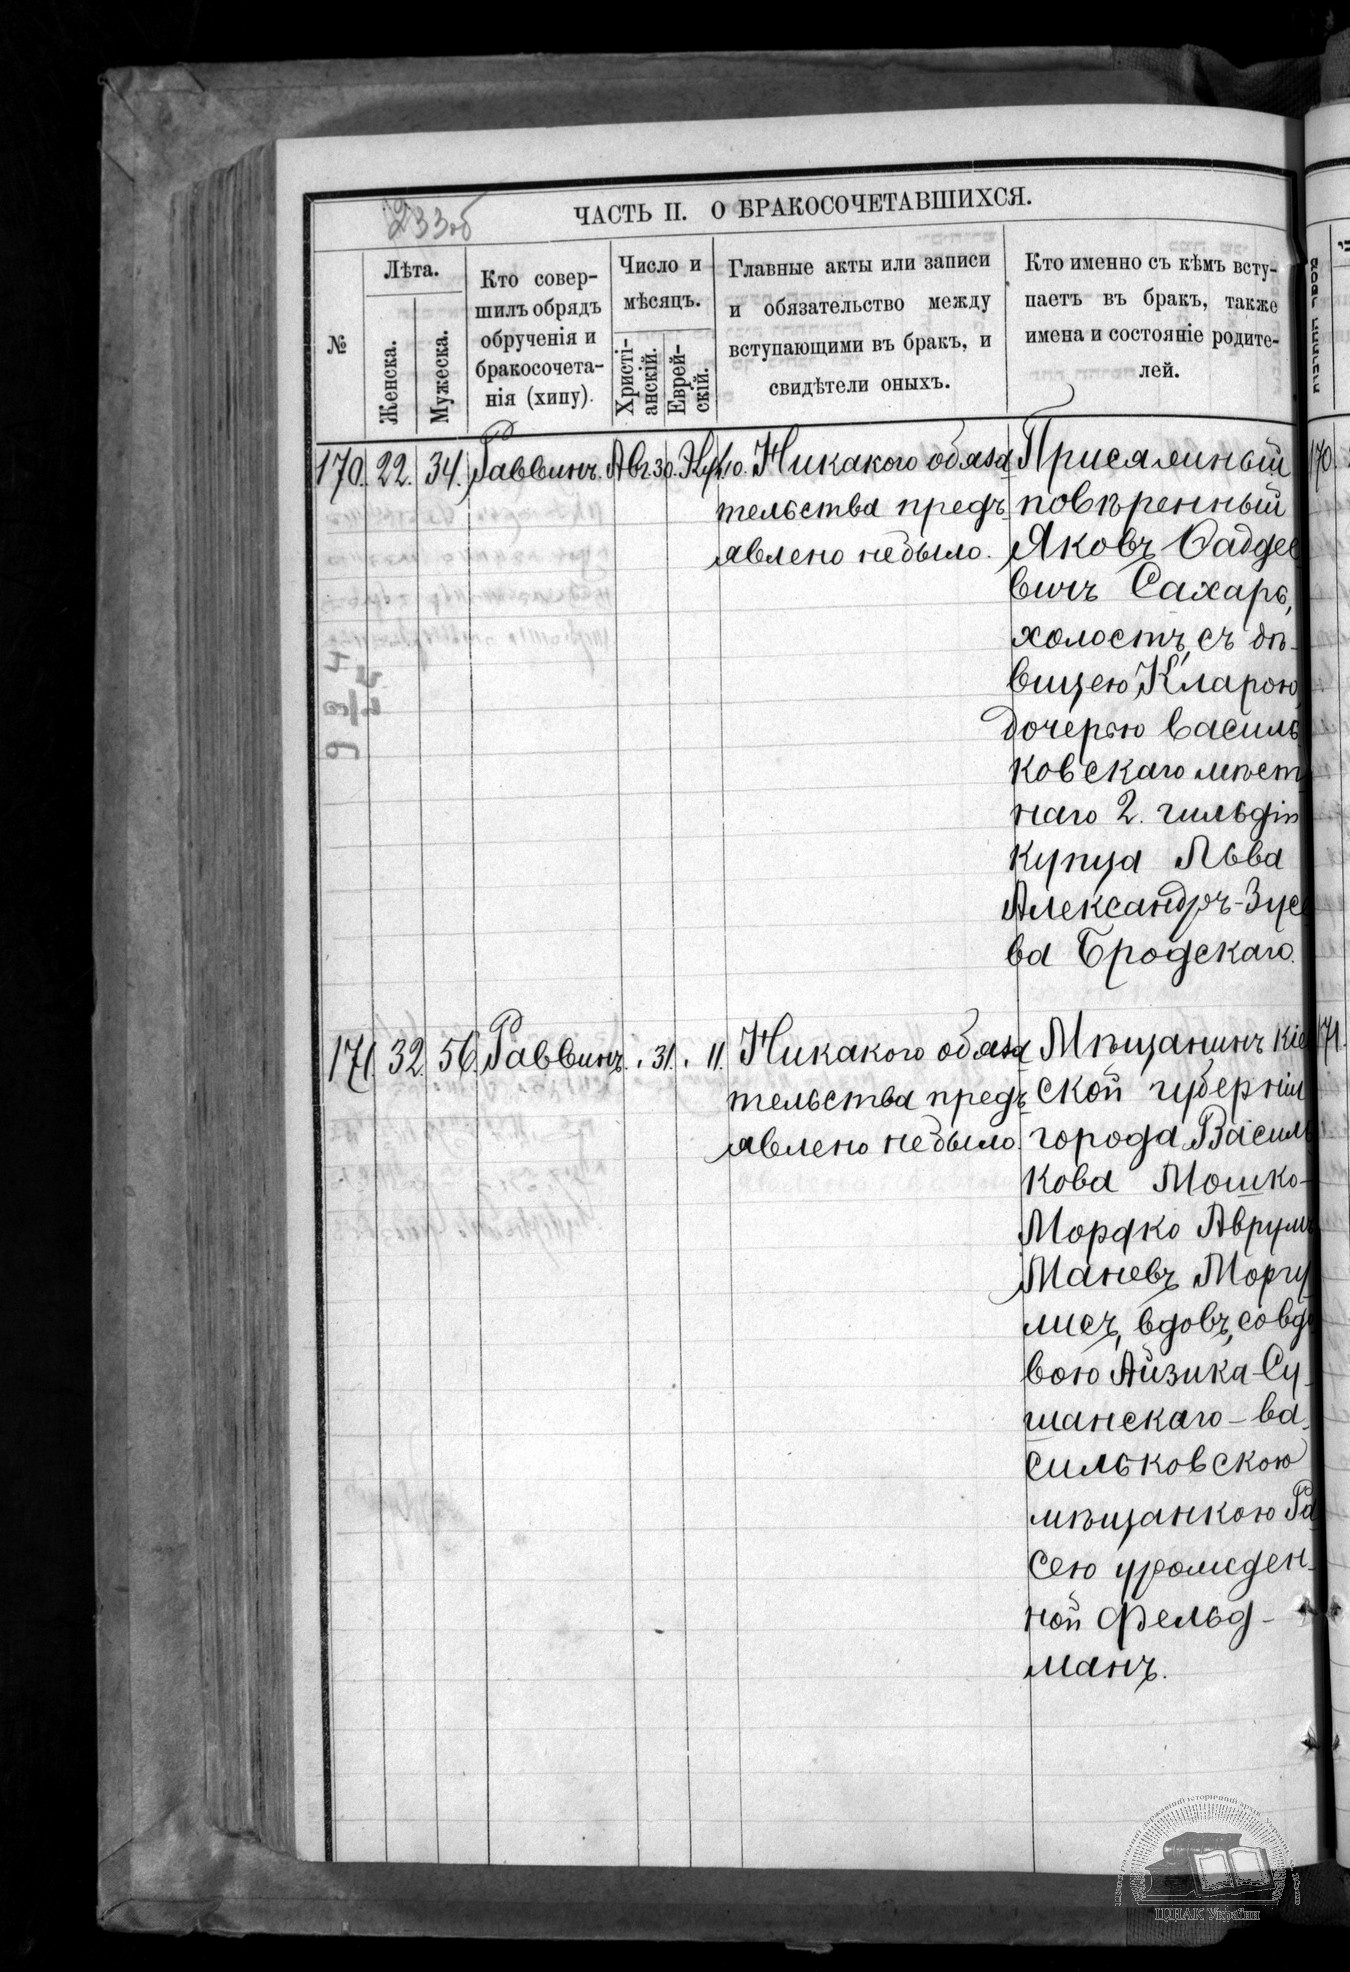 233об
ЧАСТЬ II. О БРАКОСОЧЕТАВШИХСЯ.
№
Лѣта.
Женска.
Мужеска.
Кто совер-
шилъ обрядъ
обрученія и
бракосочета-
нія (хипу).
Число и
мѣсяцъ.
Христі-
анскій.
Еврей-
скій.
Главные акты или записи
и обязательство между
вступающими въ бракъ, и
свидѣтели оныхъ.
Кто именно съ кѣмъ всту-
паетъ въ бракъ, также
имена и состояніе родите-
лей.
170. 22. 34. Раввинъ. Авг. 30. 10. Никакого обяза
тельства предъ
явлено небыло.
Присяжный
повѣренный
Яковъ
вичъ Сахаръ,
холостъ, съ дѣ-
вицею Кларою
дочерью Василь
ковскаго мѣст
наго 2. гильдіи
купца Льва
Александръ-Зусе
ва Бродскаго.
171. 32. 56. Раввинъ. " 31. " 11. Никакого обяза
тельства предъ
явлено небыло.
Мѣщанинъ Кіев
ской губерніи
города Василь
кова Мошко-
Мордко Аврумъ
Маневъ Моргу
лисъ, вдовъ, со вдо
вою Айзика Су-
шанскаго - ва-
сильковскою
мѣщанкою Ра
сею урожден-
ной Фельд-
манъ.
170.
171.
ЦДІАК України